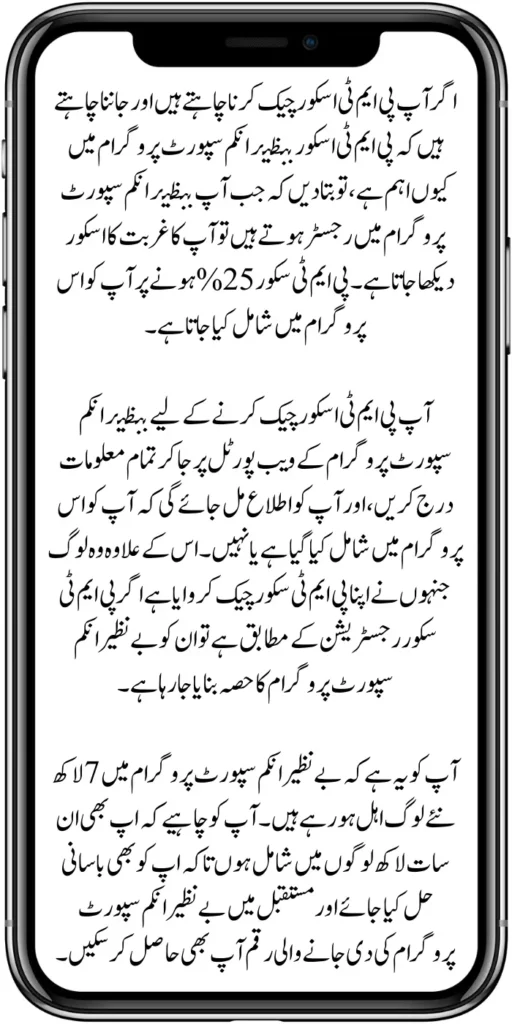 اگر آپ پی ایم ٹی اسکور چیک کرنا چاہتے ہیں اور جاننا چاہتے
ہیں کہ پی ایم ٹی اسکور بینظیر انکم سپورٹ پروگرام میں
کیوں اہم ہے، تو بتا دیں کہ جب آپ بینظیر انکم سپورٹ
پروگرام میں رجسٹر ہوتے ہیں تو آپ کا غربت کا اسکور
دیکھا جاتا ہے۔ پی ایم ٹی سکور 25% ہونے پر آپ کو اس
پروگرام میں شامل کیا جاتا ہے۔
آپ پی ایم ٹی اسکور چیک کرنے کے لیے بینظیر انکم
سپورٹ پروگرام کے ویب پورٹل پر جا کر تمام معلومات
درج کریں، اور آپ کو اطلاع مل جائے گی کہ آپ کو اس
پروگرام میں شامل کیا گیا ہے یا نہیں۔ اس کے علاوہ وہ لوگ
جنہوں نے اپنا پی ایم ٹی سکور چیک کروایا ہے اگر پی ایم ٹی
سکور رجسٹریشن کے مطابق ہے تو ان کو بے نظیر انکم
سپورٹ پروگرام کا حصہ بنایا جا رہا ہے۔
آپ کو یہ ہے کہ بے نظیر انکم سپورٹ پروگرام میں 7 لاکھ
نئے لوگ اہل ہو رہے ہیں۔ آپ کو چاہیے کہ اپ بھی ان
سات لاکھ لوگوں میں شامل ہوں تاکہ اپ کو بھی باسانی
حل کیا جائے اور مستقبل میں بے نظیر انکم سپورٹ
پروگرام کی دی جانے والی رقم آپ بھی حاصل کر سکیں۔